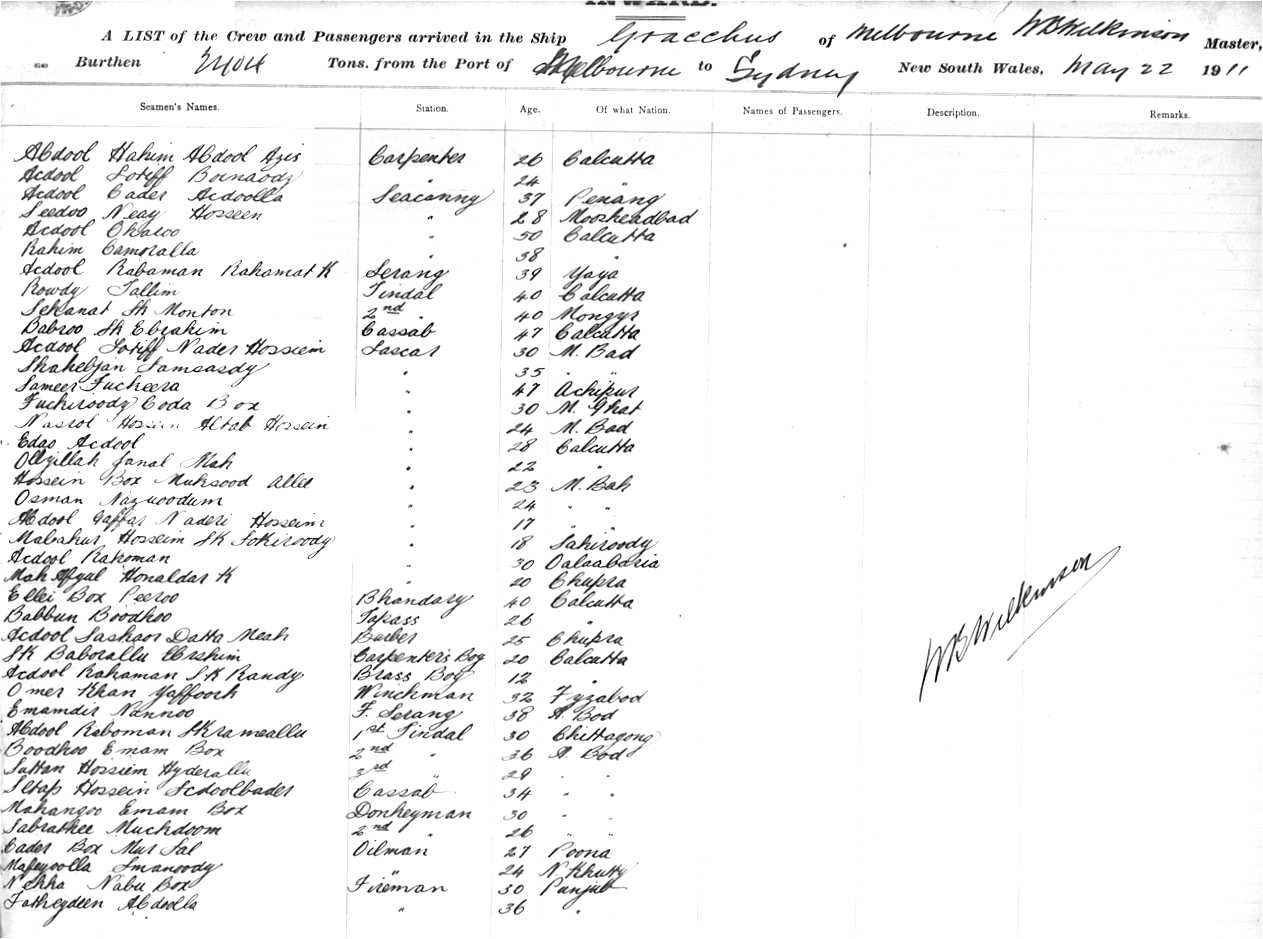 INWARD.
A LIST of the Crew and Passengers arrived in the Ship Gracchus of Melbourne WBWilkinson Master,
Burthen Tons, from the Port of Melbourne to Sydney New South Wales, May 22 1911
Seamen's Names. Station. Age. Of what Nation. Names of Passengers. Description. Remarks.
Abdool Hakim Abdool Azis Carpenter 26 Calcutta
Acdool Lotiff 24 "
Acdool Cader Acdoolla Seacunny 37 Penang
Seedoo Neay Hosseen " 28 Moosheadbad
Acdool " 50 Calcutta
Rahim Camoralla 38 "
Acdool Rahaman Rahamat K Serang 39 Yaya
Rowdy Tallim Tindal 40 Calcutta
Sk Monton 2nd " 40 Mongyr
Babroo Sk Ebrahim Cassab 47 Calcutta
Acdool Lotiff Nader Hossiem Lascar 30 M. Bad
Shahebjan Samsasdy " 35 " "
Sameer Fucheera " 47 Achipur
Fuchiroody Coda Box " 30 M. Ghat
Hossein Altab Hossein " 24 M. Bad
Edoo Acdool " 28 Calcutta
Janal Mah " 22 "
Hossein Box Muksood Allee " 23 M. Bah
Osman " 24 " "
Abdool Gaffar Naderi Hosseim " 17 " "
Hosseim SK Sokiroody " 18 Sahiroody
Acdool Rahoman 30
Mah Afzul Honaldar K 20 Chupra
Ellei Box Peeroo Bhandary 40 Calcutta
Babbun Boodhoo Topass 26 "
Acdool Lashaor Datta Meah Barber 25 Chupra
SK Baborallu Ebrshim Carpenter's Boy 20 Calcutta
Acdool Rahaman S.K Randy Brass Boy 12 "
Omer Khan Yaffoorh Winchman 32 Fyzabod
Emamdir Nannoo F. Serang 38 A. Bod
Abdool Raboman Skrameallu 1st Tindal 30 Chittagong
Boodhoo Emam Box 2nd " 36 A. Bod
Sattan Hossiem Hyderallu 3rd " 29 " "
Setap Hossein Cassab 34 " "
Mahangoo Emam Box Donkeyman 30 " "
Sabrathee Muchdoom 2nd " 26 " "
Cader Box Mur Sal Oilman 27 Poona
Smanoody " 24 N. Khutty
Nehha Nabu Box Fireman 30 Punjub
Fatheydeen Abdoolla " 36 "
WBWilkinson